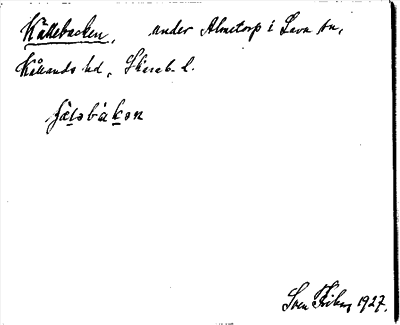 Källebacken, under Almetorp i Sava sn,
Kållands hd, Skarab. l.
ɟäləbàkən
Sven 1927.